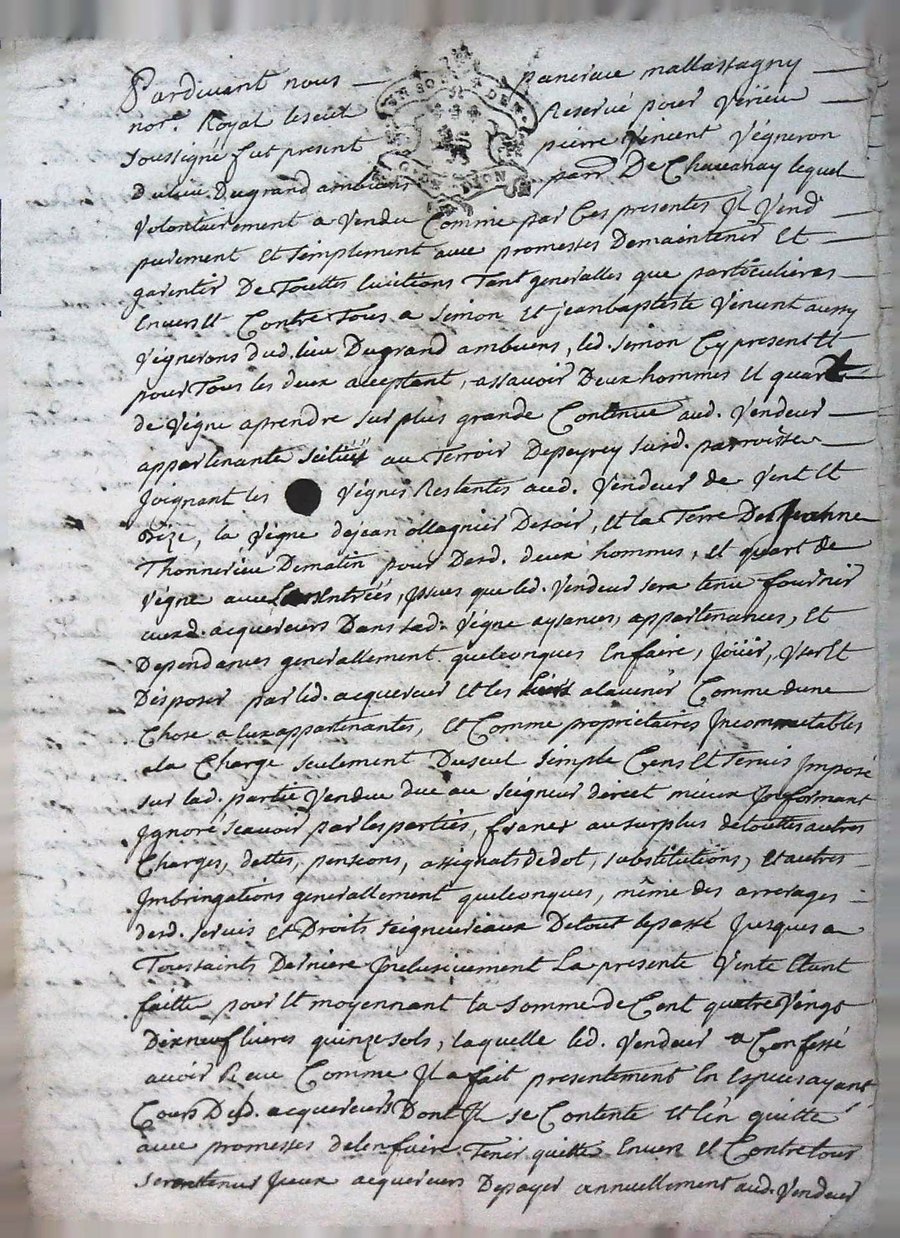 Pardevant nous — pancrace mallassagny —
nore. Royal les ceit Reservé pour Verieu —
soussigné fut present pierre Vincent Vigneron
Dulieu Dugrand ambuens parr De Chavanay lequel
Volontairement a Vendu Comme par Ces presentes Il Vend —
purement Et simplement avec promesses Demaintenir Et —
garentir De Touttes Evictions Tant generalles que particulieres —
Envers Et Contre Tous a simon Et jeanbaptiste Vincent aussy
Vignerons dud. lieu Dugrand ambuens, led. simon Cy present Et
pour Tous les deux aceptant, assavoir Deux hommes Et quart
de Vigne aprendre sur plus grande Contenue aud. Vendeur —
appartenante scituée au Terroir Depeyrey susd. parroisse —
Joignant les Vignes Restentes aud. Vendeur de Vent Et
Bize, la Vigne dejean ollagnier Desoir, Et la Terre De Jeanne
Thonnerieu Dematin pour Desd. deux hommes, Et quart de
Vigne avec Les Entrées, Issues que led. Vendeur sera tenu fournir
auxd. acquereurs Dans lad. Vigne aysances, appartenances, Et
Dependances generallement quelconques Enfaire, Joüir, User Et
Disposer par led. acquereur Et les siens alavenir Comme dune
Chose a eux appartenante, Et Comme proprietaires Incommutables
ala Charge seulement Duseul simple Cens Et servis Imposé
sur lad. partie Vendue due au seigneur deree mieux Informant
Ignoré scavoir par les parties, franex au surplus de touttes autres
Charges, dettes, pensions, assignats de dot, substitutions, Et autres
Imbringations generallement quelconques, même des arrerages —
desd. servis Et Droits seigneuriaux Detout lepassé Jusques a
Toussaints Derniere Inclusivement La presente Vente Etant
faitte pour Et moyennant la somme de Cent quatre Vingt
Dixneuf livres quinze sols, laquelle led. Vendeur a Confessé
avoir Receu Comme Il a fait presentement En Especes ayant
Cours Desd. acquereurs Dont Il se Contente Et l'en quitte
avec promesses delenfaire Tenir quitte Envers Et Contre tous
seront tenus Iceux acquereurs Depayer annuellement aud. Vendeur